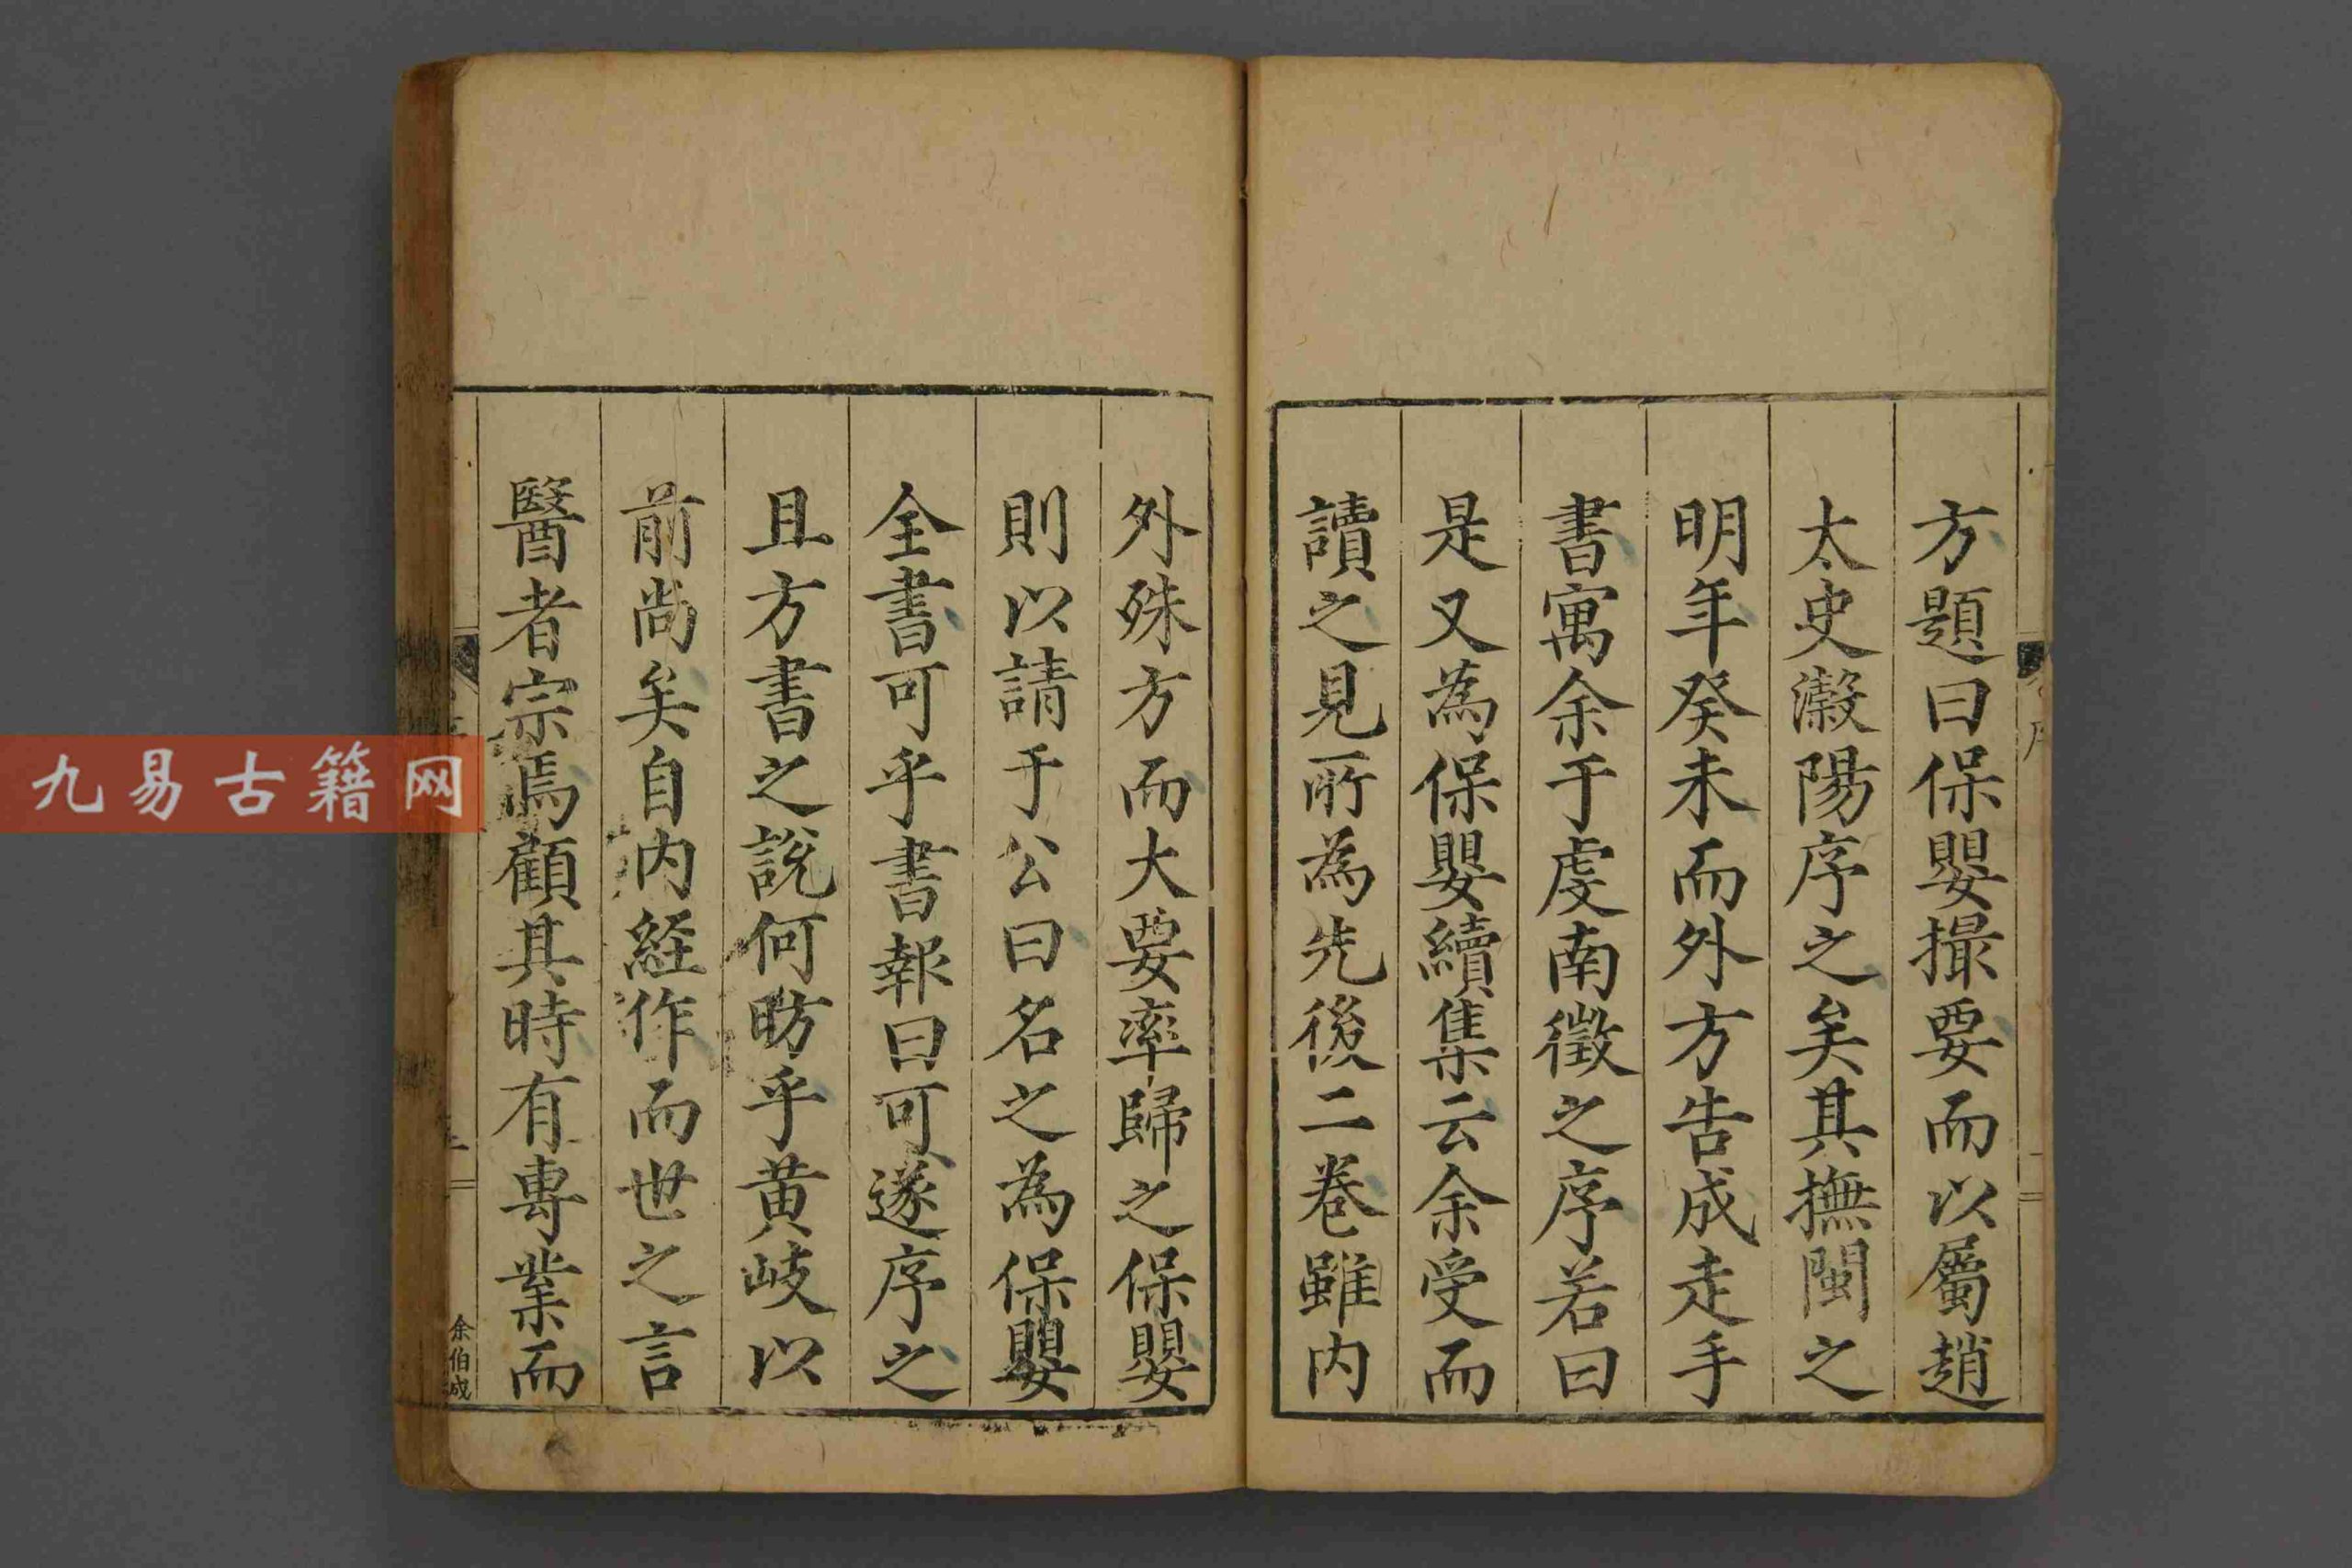 方題曰保嬰撮要而以屬趙
太史瀫陽序之矣其撫閩之
明年癸未而外方告成走手
書寓余于虔南徵之序若曰
是又為保嬰續集云余受而
讀之見所為先後二卷雖内
外殊方而大要率歸之保嬰
則以請于公曰名之為保嬰
全書可乎書報曰可遂序之
且方書之說何昉乎黄岐以
前尚矣自内経作而世之言
醫者宗焉顧其時有專業而
余伯成
九易古籍网